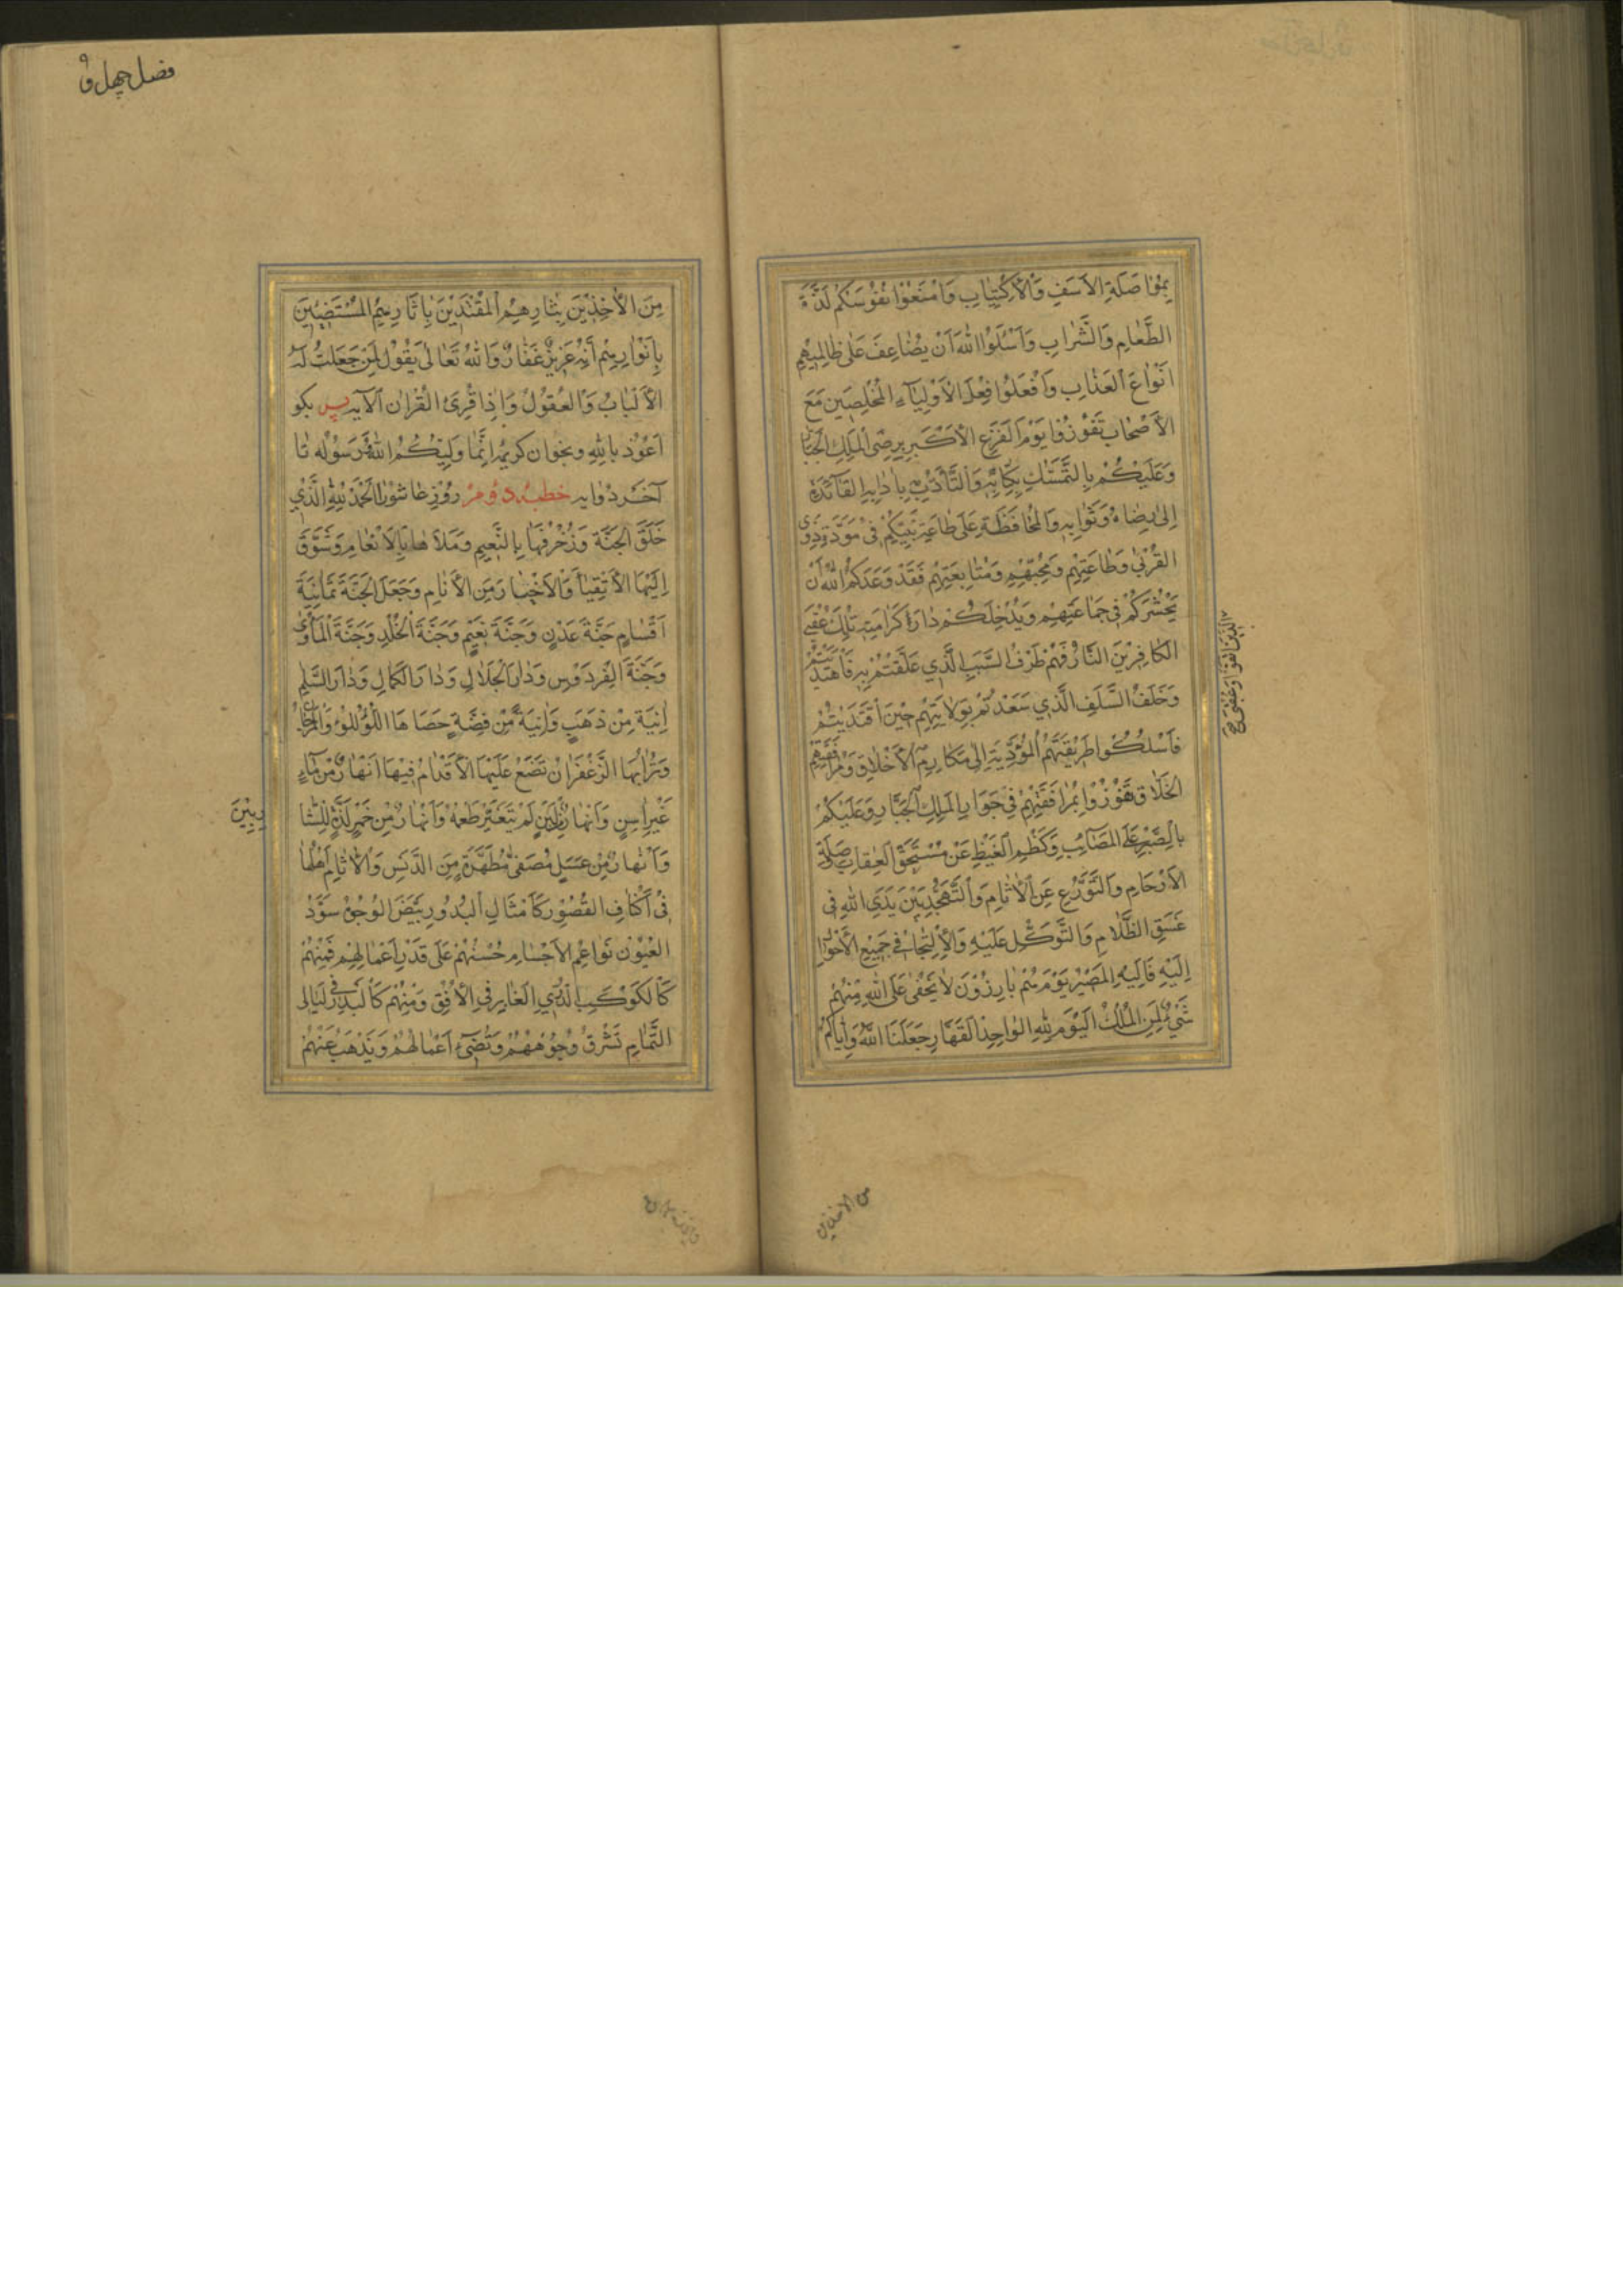 بِمُوٰاصَلَةِ الاَسَفِ وَالْاِكْتِيٰابِ وَامْنَعُوْا نُفُوْسَكُمْ لَذَّةَ
الطَّعٰامِ وَالشَّرٰابِ وَاَسْئَلُوا اللّٰهَ اَنْ يُضٰاعِفَ عَلٰى ظٰالِمِيْهِم
اَنْوٰاعَ الْعَذٰابِ وَافْعَلُوْا فِعْلَ الْاَوْلِيٰآءِ الْمُخْلِصِيْنَ مَعَ
الْاَصْحٰابِ تَفُوْزُوْا يَوْمَ الْفَزَعِ الْاَكْبَرِ بِرِضَى الْمَلِكِ الْجَبّٰارِ
وَعَلَيْكُمْ بِالتَّمَسُّكِ بِكِتٰابِهِ وَالتَّأَدُّبِ بِاٰدٰابِهِ الْقٰآئِدَةِ
اِلىٰ رِضٰاهُ وَثَوٰابِهِ وَالْمُحٰافَظَةِ عَلىٰ طٰاعَةِ نَبِيِّكُمْ فِيْ مَوَدَّةِ ذَوِى
الْقُرْبىٰ وَطٰاعَتِهِمْ وَمُحِبِّيْهِمْ وَمُتٰابِعَتِهِمْ فَقَدْ وَعَدَكُمُ اللّٰهُ اَنْ
يَحْشُرَكُمْ فِيْ جَمٰاعَتِهِمْ وَيُدْخِلَكُمْ دٰارَ كَرٰامَتِهِ تِلْكَ عُقْبَى
الَّذِيْنَ اتَّقَوْا وَعُقْبَى
الْكٰافِرِيْنَ النّٰارُ فَهُمْ طَرَفُ السَّبَبِ الَّذِيْ عَلَّقْتُمْ بِهِ فَاهْتَدَيْتُمْ
وَخَلَفُ السَّلَفِ الَّذِيْ سَعَدْتُمْ بِوِلٰايَتِهِمْ حِيْنَ اقْتَدَيْتُمْ
فَاَسْلُكُوْا طَرِيْقَتَهُمُ الْمُؤَدِّيَةَ اِلىٰ مَكٰارِمِ الْاَخْلٰاقِ وَمُرٰافَقَتِهِمْ
الْخَلّٰاقِ تَفُوْزُوْا بِمُرٰافَقَتِهِمْ فِيْ جَوٰارِ الْمَلِكِ الْجَبّٰارِ وَعَلَيْكُمْ
بِالصَّبْرِ عَلَى الْمَصٰآئِبِ وَكَظْمِ الْغَيْظِ عَنْ مُسْتَحِقِّ الْعِقٰابِ وَصِلَةِ
الْاَرْحٰامِ وَالتَّوَرُّعِ عَنِ الْاٰثٰامِ وَالتَّهَجُّدِ بَيْنَ يَدَيِ اللّٰهِ فِى
غَسَقِ الظَّلٰامِ وَالتَّوَكُّلِ عَلَيْهِ وَالْاِلْتِجٰآءِ فِيْ جَمِيْعِ الْاَحْوٰالِ
اِلَيْهِ فَاِلَيْهِ الْمَصِيْرُ يَوْمَ هُمْ بٰارِزُوْنَ لٰا يَخْفىٰ عَلَى اللّٰهِ مِنْهُمْ
شَيْءٌ لِمَنِ الْمُلْكُ الْيَوْمَ لِلّٰهِ الْوٰاحِدِ الْقَهّٰارِ جَعَلَنَا اللّٰهُ وَاِيّٰاكُمْ
من الاخذين
فصل چهل و
مِنَ الْاٰخِذِيْنَ بِثٰارِهِمْ الْمُقْتَدِيْنَ بِاٰثٰارِهِمْ الْمُسْتَضِيْئِيْنَ
بِاَنْوٰارِهِمْ اَنَّهُ عَزِيْزٌ غَفّٰارٌ وَاللّٰهُ تَعٰالىٰ يَقُوْلُ لِمَنْ جَعَلْتُ لَهُ
الْاَلْبٰابُ وَالْعُقُوْلُ وَاِذٰا قُرِئَ الْقُرْاٰن الاٰيه پس بكو
اَعُوْذ بِاللّٰهِ وبخوان كريمه اِنَّمٰا وَلِيُّكُمُ اللّٰهُ وَرَسُوْلُه تا
آخر دو آيه خطبه دوم روز عاشورا اَلْحَمْدُ لِلّٰهِ الَّذِيْ
خَلَقَ الْجَنَّةَ وَزُخْرُفَهٰا بِالنَّعِيْمِ وَمَلَاَهٰا بِالْاَنْعٰامِ وَشَوَّقَ
اِلَيْهَا الْاَتْقِيٰآءَ وَالْاَخْيٰارَ مِنَ الْاَنٰامِ وَجَعَلَ الْجَنَّةَ ثَمٰانِيَةَ
اَقْسٰامٍ جَنَّةَ عَدْنٍ وَجَنَّةَ نَعِيْمٍ وَجَنَّةَ الْخُلْدِ وَجَنَّةَ الْمَأْوىٰ
وَجَنَّةَ الْفِرْدَوْسِ وَدٰارَ الْجَلٰالِ وَدٰارَ الْكَمٰالِ وَدٰارَ السَّلٰمِ
اٰنِيَة مِنْ ذَهَبٍ وَاٰنِيَةً مِنْ فِضَّةٍ حَصٰاهَا اللُّؤْلُؤُ وَالْمَرْجٰانُ
وَتُرٰابُهَا الزَّعْفَرٰانُ تَضَعُ عَلَيْهَا الْاَقْدٰامُ فِيْهٰا اَنْهٰارٌ مِنْ مٰآءٍ
غَيْرِ اٰسِنٍ وَاَنْهٰارٌ مِنْ لَبَنٍ لَمْ يَتَغَيَّرْ طَعْمُهُ وَاَنْهٰارٌ مِنْ خَمْرٍ لَذَّةٍ لِلشّٰا
رِبِيْنَ
وَاَنْهٰارٌ مِنْ عَسَلٍ مُصَفًّى مُطَهَّرَةٍ مِنَ الدَّنَسِ وَالْاٰثٰامِ اَهْلُهٰا
فِيْ اَكْنٰافِ الْقُصُوْرِ كَاَمْثٰالِ الْبُدُوْرِ بَيْضَ الْوُجُوْهِ سَوْدَ
الْعُيُوْنِ نَوٰاعِمَ الْاَجْسٰامِ حُسْنُهُمْ عَلىٰ قَدْرِ اَعْمٰالِهِمْ فَمِنْهُمْ
كَالْكَوْكَبِ الدُّرِّيِّ الْغٰابِرِ فِي الْاُفُقِ وَمِنْهُمْ كَالْبَدْرِ فِيْ لَيٰالِى
التَّمٰامِ تَشْرُقُ وُجُوْهُهُمْ وَتُضِيْءُ اَعْمٰالُهُمْ وَيَذْهَبُ عَنْهُمْ